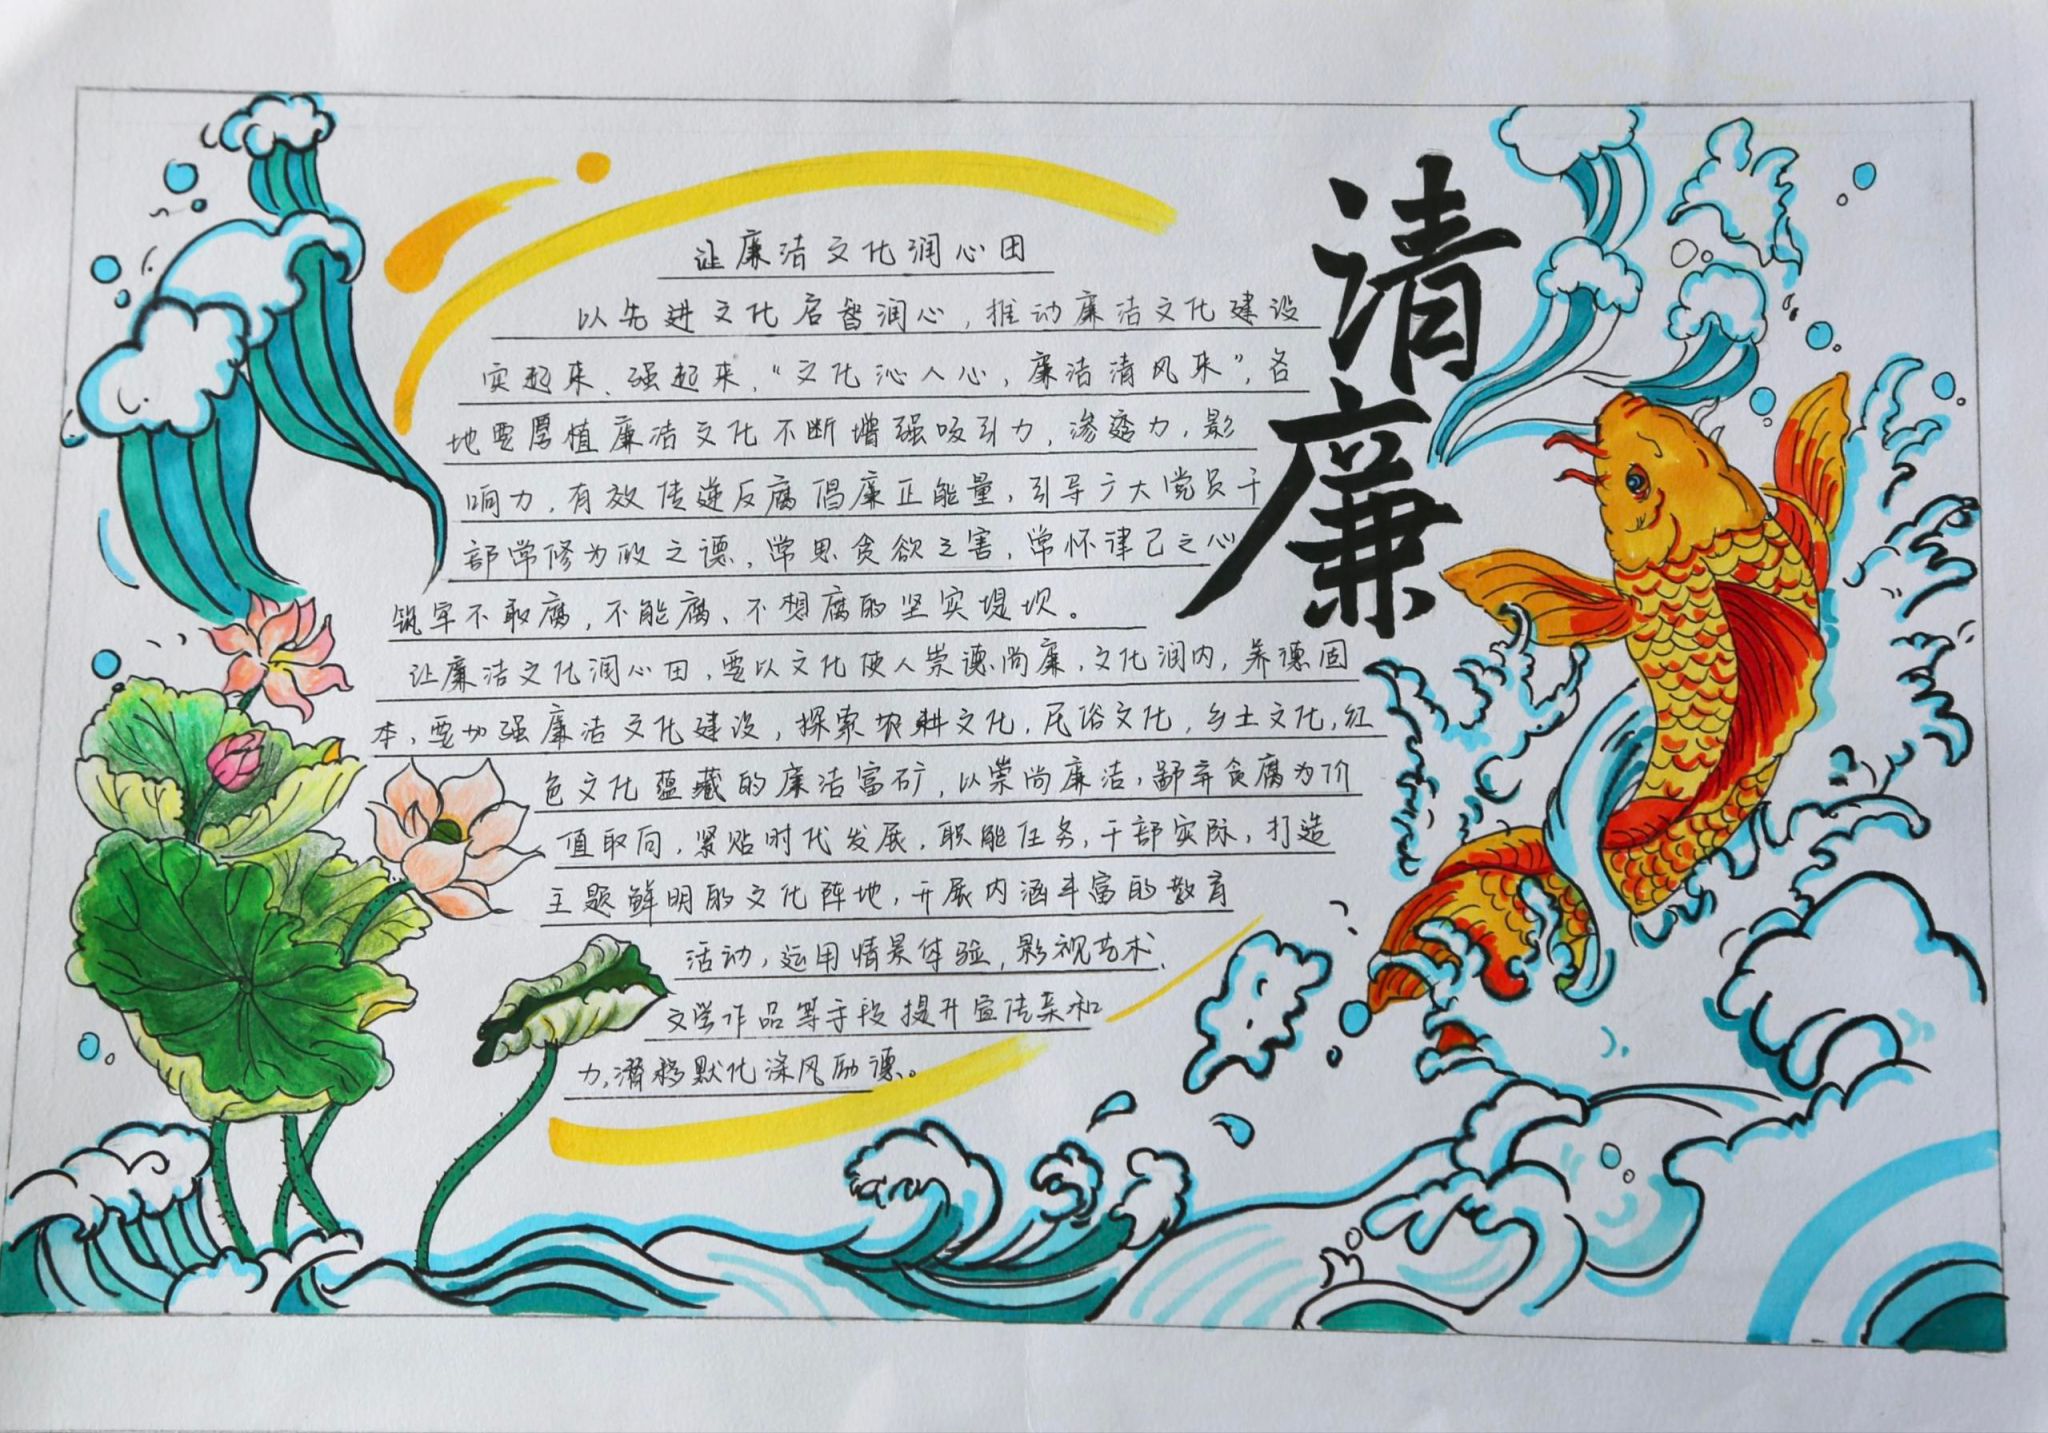 清廉
让廉洁文化润心田
以先进文化启智润心，推动廉洁文化建设
实起来、强起来，“文化沁人心，廉洁清风来”，各
地要厚植廉洁文化不断增强吸引力，渗透力，影
响力，有效传递反腐倡廉正能量，引导广大党员干
部常修为政之德，常思贪欲之害，常怀律己之心
筑牢不敢腐，不能腐、不想腐的坚实堤坝。
让廉洁文化润心田，要以文化使人崇德尚廉，文化润内，养德固
本，要加强廉洁文化建设，探索农耕文化，民俗文化，乡土文化，红
色文化蕴藏的廉洁富矿，以崇尚廉洁，鄙弃贪腐为价
值取向，紧贴时代发展，职能任务，干部实际，打造
主题鲜明的文化阵地，开展内涵丰富的教育
活动，运用情景体验，影视艺术、
文学作品等手段提升宣传亲和
力，潜移默化涤风励德。